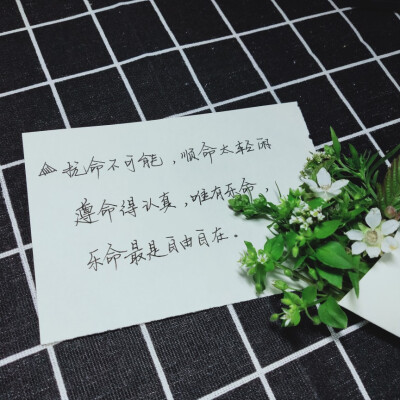 抗命不可能，顺命太轻闲
遵命得认真，唯有乐命，
乐命最是自由自在。